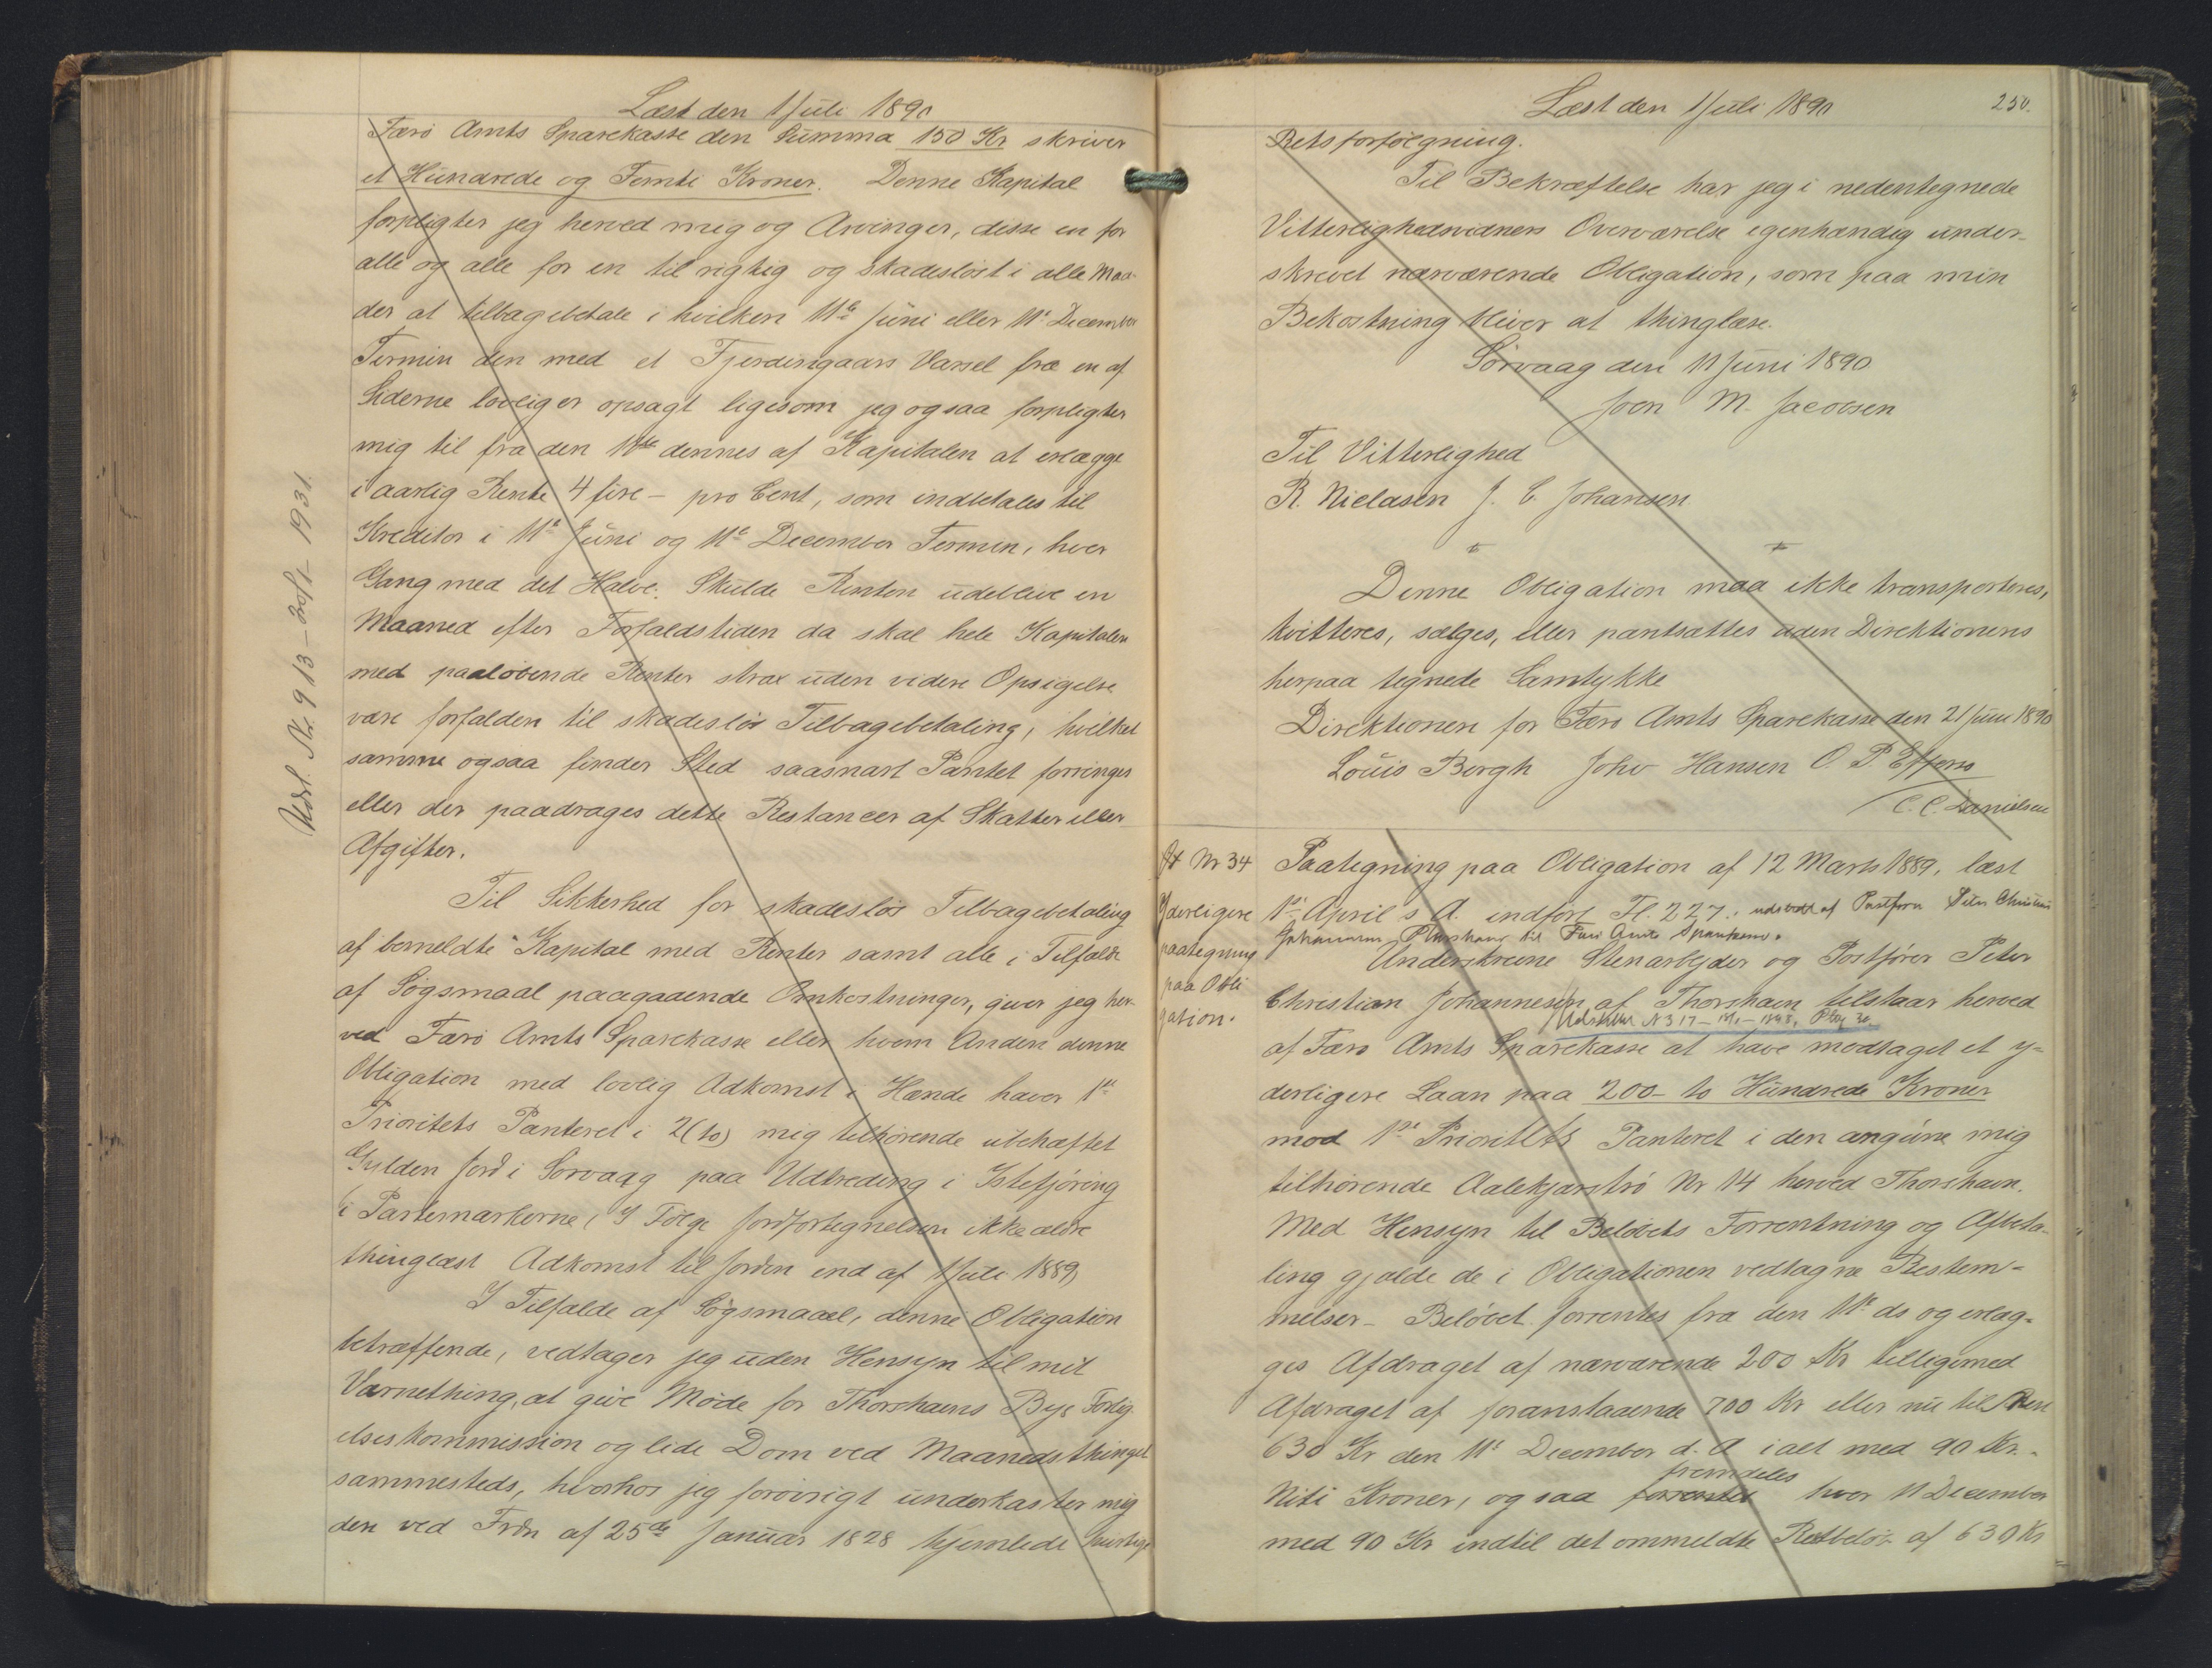 Læst den 1 Juli 1890
Færö Amts Sparekasse den Summa 150 Kr skriver
et Hundrede og Femti Kroner. Denne Kapital
forpligter jeg herved mig og Arvinger, disse en for
alle og alle for en til rigtig og skadeslöst i alle Maa-
der at tilbagebetale i hvilken 11te Juni eller 11te December
Termin den med et Fjerdingaars Varsel fra en af
Siderne lovlig er opsagt ligesom jeg ogsaa forpligter
mig til fra den 11te dennes af Kapitalen at erlægge
i aarlig Rente 4 fire - pro Cent, som indbetales til
Kreditor i 11te Juni og 11te December Termin, hver
Gang med det Halve. Skulde Renten udeblive en
Maaned efter Forfaldstiden da skal hele Kapitalen
med paaløbende Renter strax uden videre Opsigelse
være forfalden til skadeslös Tilbagebetaling, hvilket
samme ogsaa finder Sted saasnart Pantet forringes
eller der paadrages dette Restancer af Skatter eller
Afgifter.
Til Sikkerhed for skadeslös Tilbagebetaling
af bemeldte Kapital med Renter samt alle i Tilfælde
af Sögsmaal paagaaende Omkostninger, giver jeg her-
ved Færö Amts Sparekasse eller hvem Anden denne
Obligation med lovlig Adkomst i Hænde haver 1ste
Prioritets Panteret i 2 (to) mig tilhörende ubehæftet
Gylden Jord i Sorvaag paa Udtreding i Istefjöring
i Partemarkerne (I Fölge Jordfortegnelsen ikke ældre
thinglæst Adkomst til Jorden end af 1 Juli 1889)
I Tilfælde af Sögsmaal, denne Obligation
betræffende, vedtager jeg uden Hensyn til mit
Værnething, at give Möde for Thorshavns Bys Forlig
elseskommission og lide Dom ved Maanedsthinget
sammesteds, hvorhos jeg forövrigt underkaster mig
den ved Frdn af 25de Januar 1828 hjemlede hurtige
Udsl. Nr. 913 - 20/1 - 1931.
Læst den 1 Juli 1890
250.
Retsforfölgning.
Til Bekræftelse har jeg i nedentegnede
Vitterlighedsvidners Overværelse egenhændig under-
skrevet nærværende Obligation, som paa min
Bekostning bliver at thinglæse.
Sörvaag den 11 Juni 1890
Joen M. Jacobsen
Til Vitterlighed
R. Nielasen J. C. Johansen
Denne Obligation maa ikke transporteres,
kvitteres, sælges, eller pantsættes uden Direktionens
herpaa tegnede Samtykke
Direktionen for Færö Amts Sparekasse den 21 Juni 1890
Louis Bergh Johs Hansen O. P. Effersö
C. C. Danielsen
Nr 34
Yderligere
paategning
paa Obli
gation.
Paategning paa Obligation af 12 Marts 1889, læst
1ste April s. A. indfört Fl. 227. udstedt af Postförer Peter Christian
Johannesen, Thorshavn til Færö Amts Sparekasse.
Underskrevne Stenarbejder og Postförer Peter
Christian Johannesen af Thorshavn tilstaar herved
af Færö Amts Sparekasse at have modtaget et y-
derligere Laan paa 200 - to Hundrede Kroner
mod 1ste Prioritets Panteret i den angivne mig
tilhörende Aalekjærströ Nr 14 herved Thorshavn.
Med Hensyn til Belöbets Forrentning og Afbeta-
ling gjælde de i Obligationen vedtagne Bestem-
melser - Belöbet forrentes fra den 11te ds og erlæg-
ges Afdraget af nærværende 200 Kr tilligemed
Afdraget af foranstaaende 700 Kr eller nu til Rest
630 Kr den 11te December d. A. ialt med 90 Kr. -
Niti Kroner, og saa fremdeles hver 11 December
med 90 Kr indtil det ommeldte Restbelöb af 630 Kr